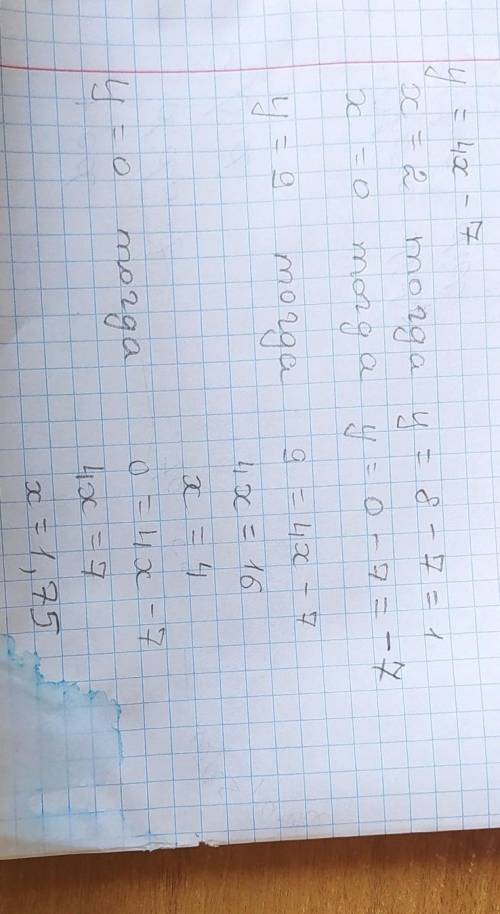 y = 4x - 7
x = 2 тогда y = 8 - 7 = 1
x = 0 тогда y = 0 - 7 = -7
y = 9 тогда 9 = 4x - 7
4x = 16
x = 4
y = 0 тогда 0 = 4x - 7
4x = 7
x = 1,75